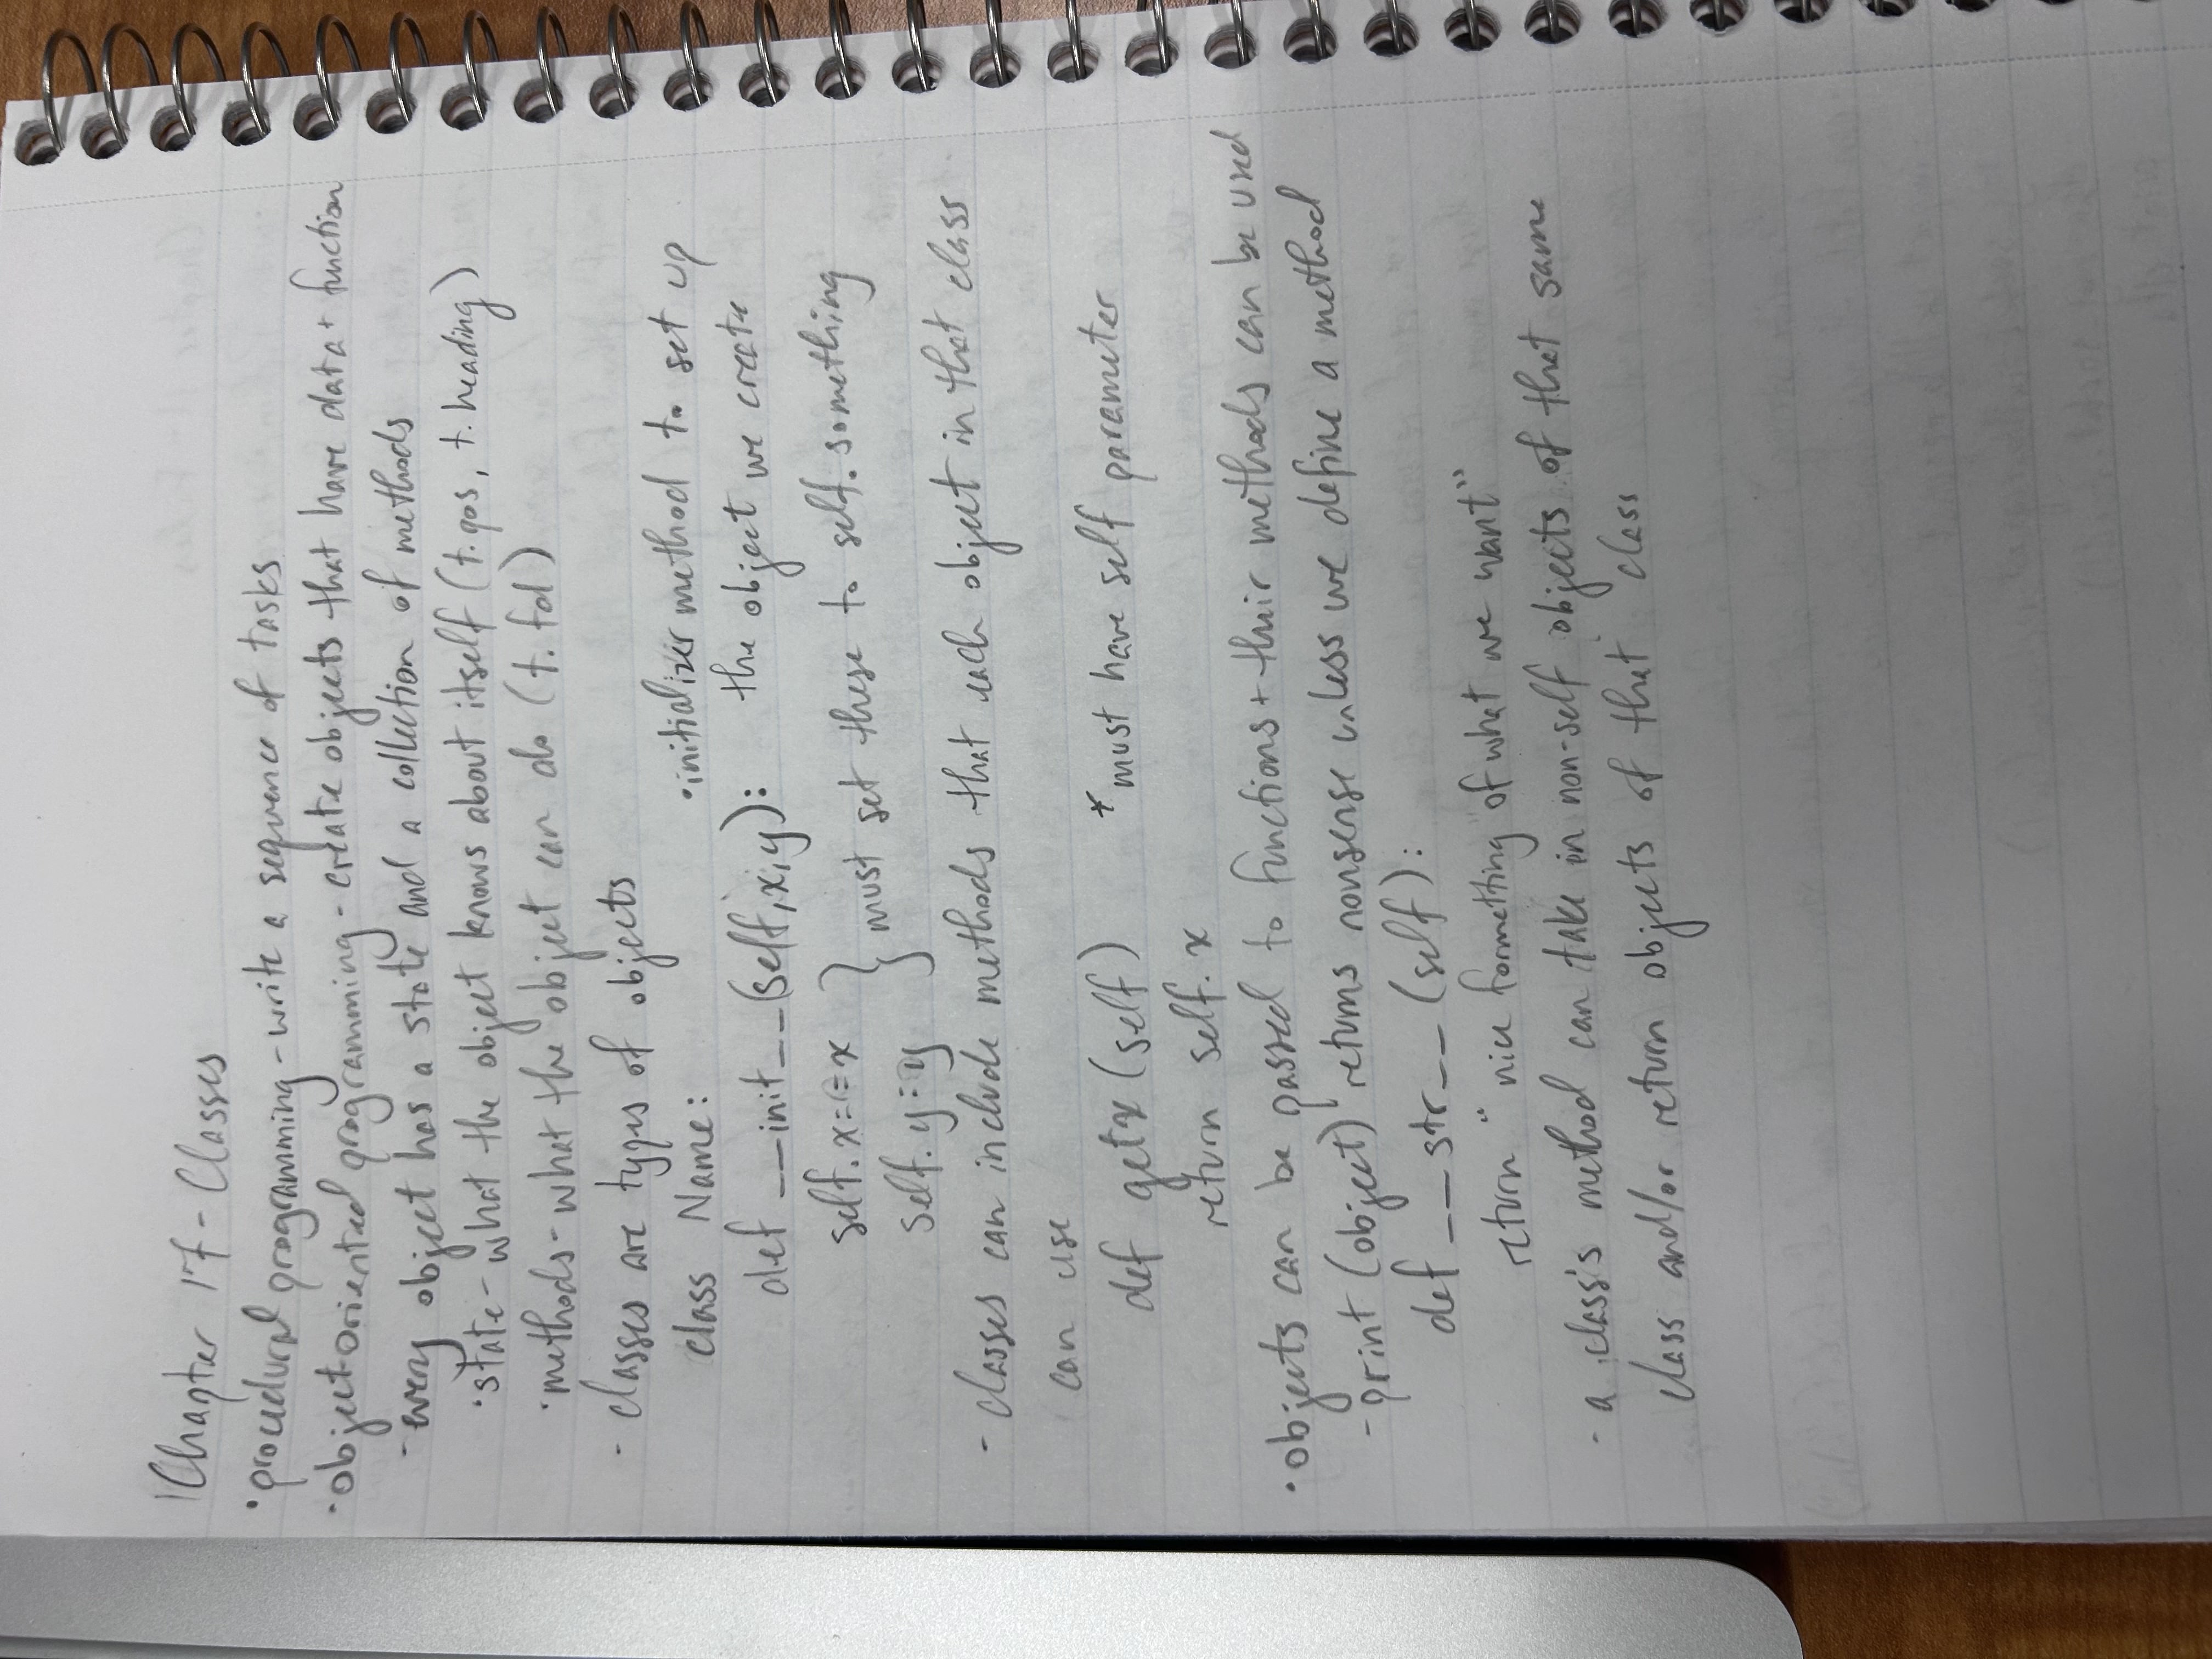 Chapter 17 - Classes
• procedural programming - write a sequence of tasks
• object-oriented programming - create objects that have data + function
- every object has a state and a collection of methods
• state - what the object knows about itself (t.pos, t.heading)
• methods - what the object can do (t.fd)
- classes are types of objects
class Name:
• initializer method to set up
def __init__(self,x,y):
the object we create
self.x = = x
self.y = y
} must set these to self.something
- classes can include methods that each object in that class
can use
def getx (self)
* must have self parameter
return self.x
• objects can be passed to functions + their methods can be used
- print (object) returns nonsense unless we define a method
def __str__ (self):
return "nice formatting of what we want"
- a class's method can take in non-self objects of that same
class and/or return objects of that class